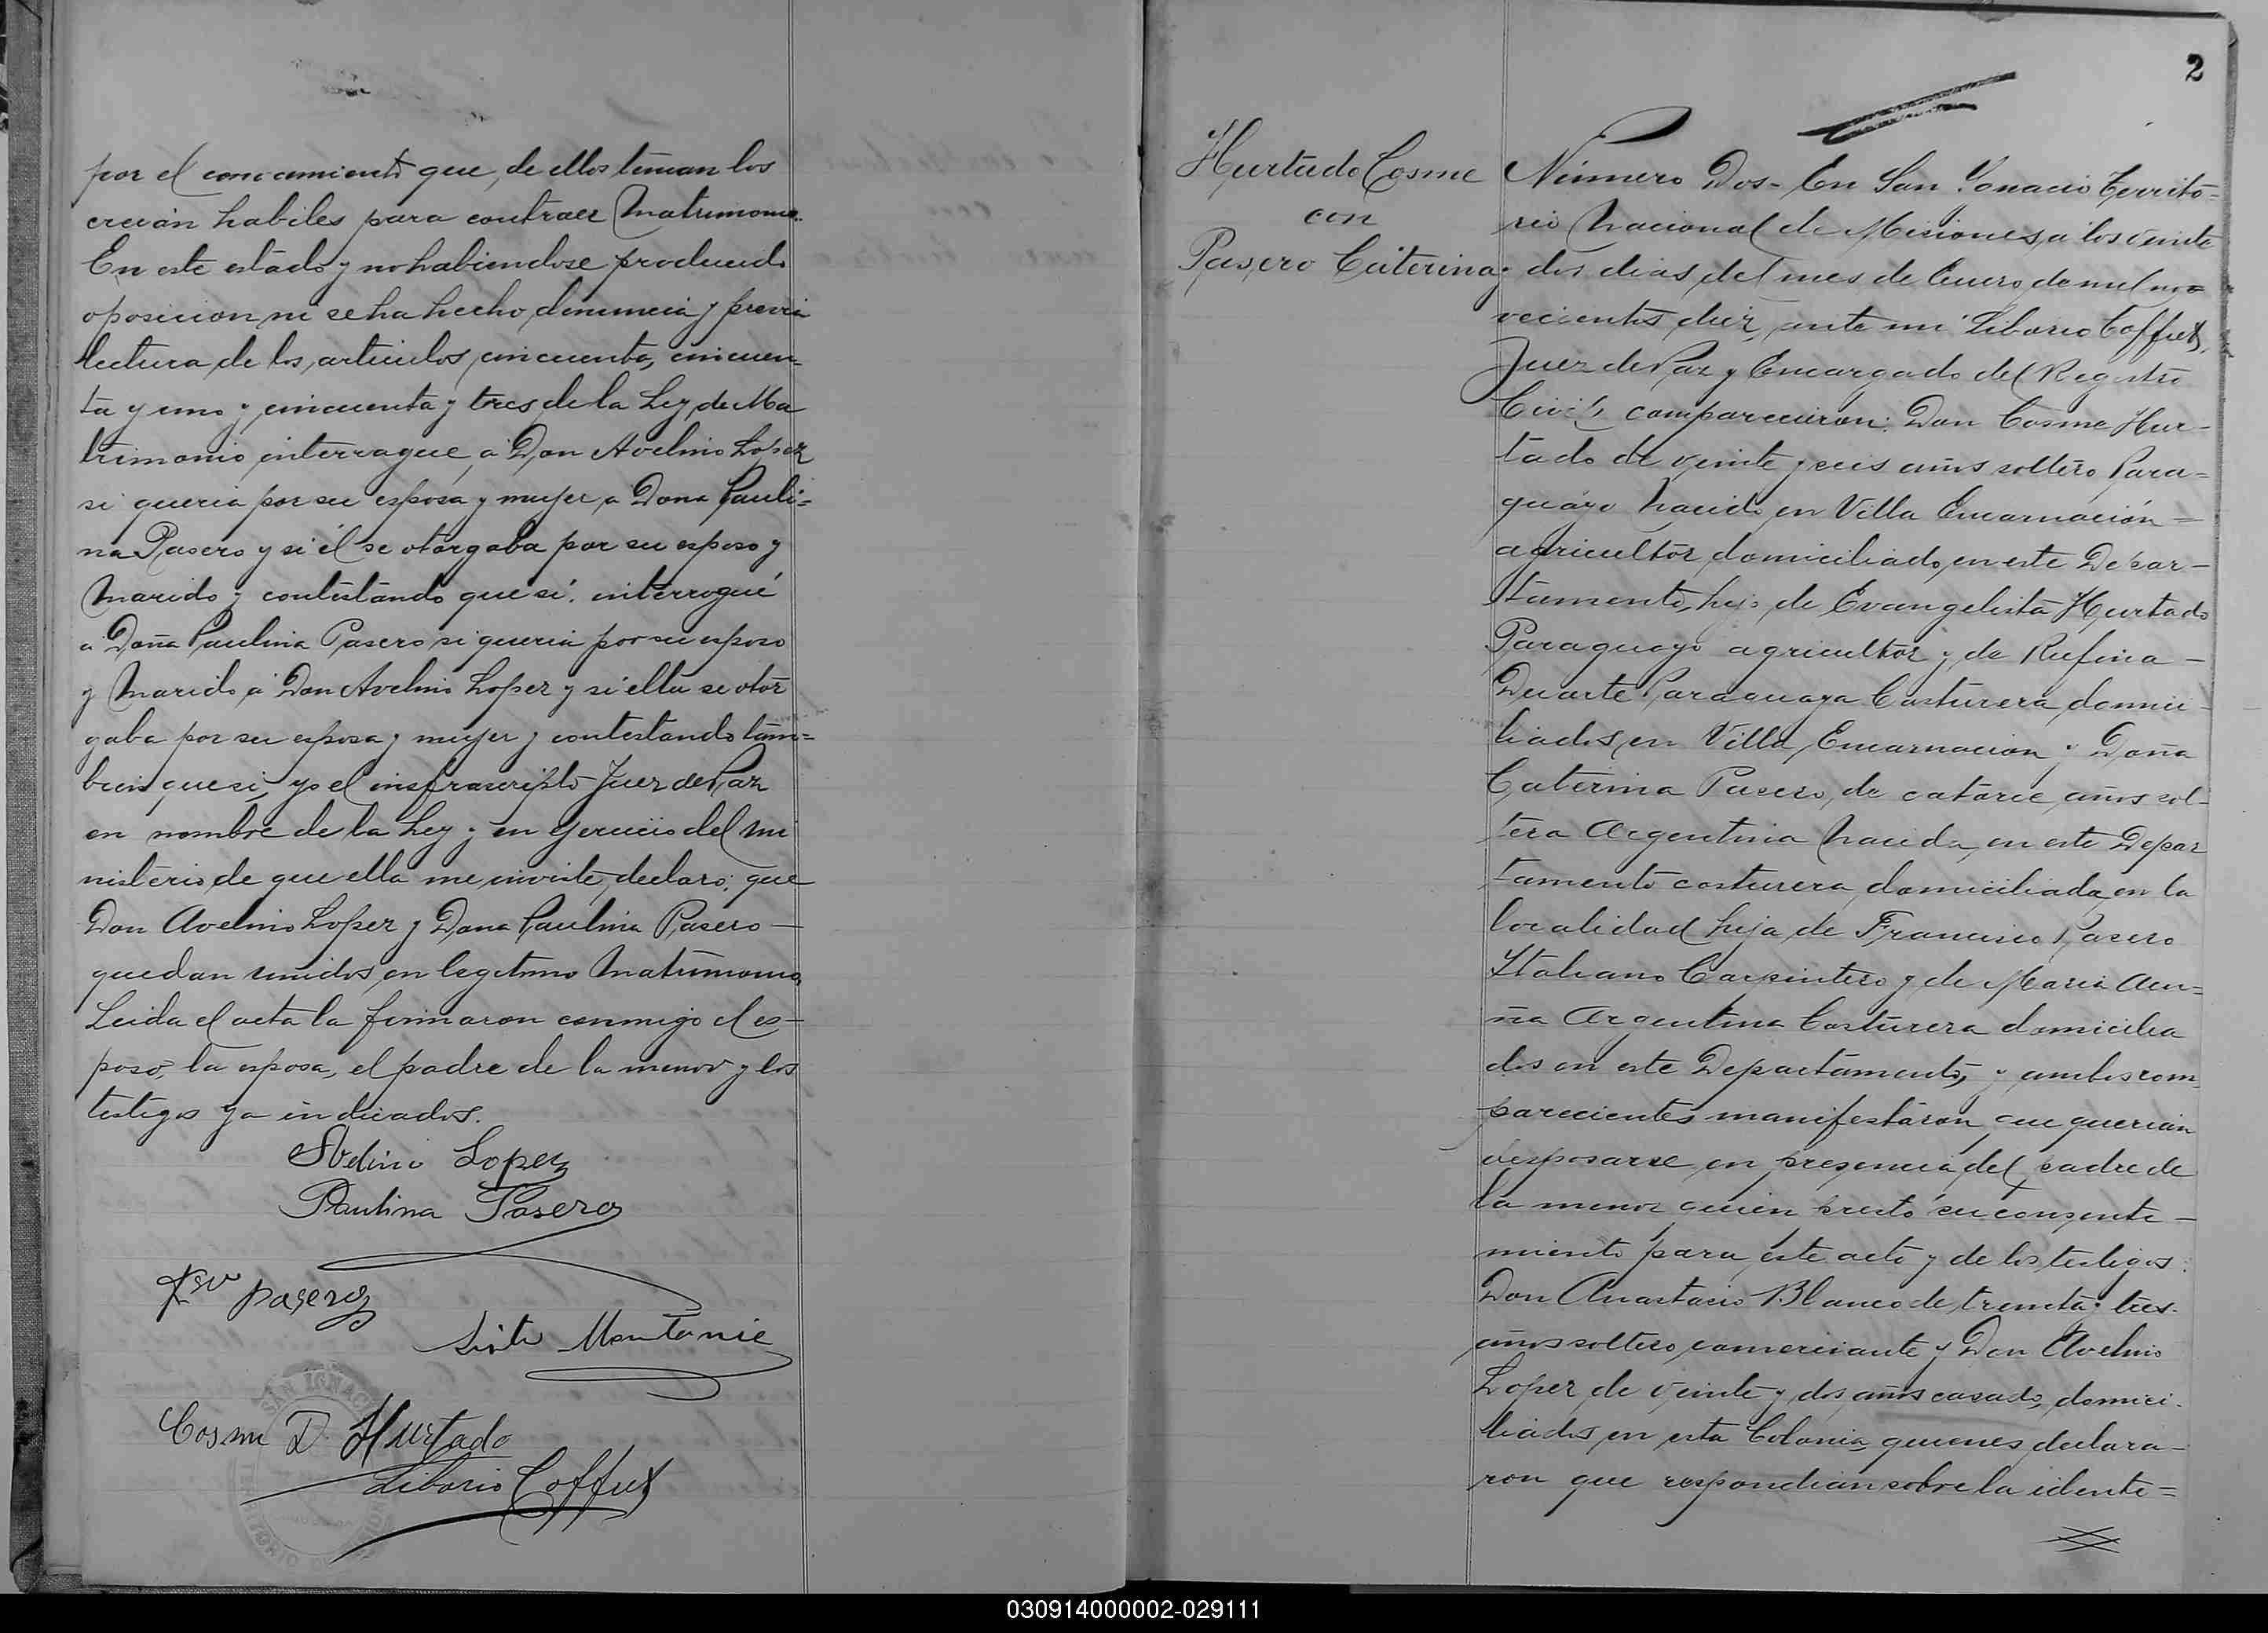 por el conocimiento que, de ellos tenian los
creian habiles para contraer Matrimonio.
En este estado y no habiendose producido
oposicion ni se ha hecho denuncia y previa
lectura de los articulos cincuenta, cincuen-
ta y uno y cincuenta y tres de la Ley de Ma
trimonio interrogué á Don Avelino Lopez
si queria por su esposa y mujer a Dona Pauli=
na Pasero y si él se otorgaba por su esposo y
Marido y contestando que si. interrogué
a Doña Paulina Pasero si queria por su esposo
y Marido á Don Avelino Lopez y si ella se otor
gaba por su esposa y mujer y contestando tam=
bien que si, yo el insfrascripto Juez de Paz
en nombre de la Ley y en ejercicio del mi
nisterio de que ella me inviste, declaro: que
Don Avelino Lopez y Dona Paulina Pasero —
quedan unidos en legitimo Matrimonio,
Leida el acta la firmaron conmigo el es-
poso, la esposa, el padre de la menor y los
testigos ya indicados.
Avelino Lopez
Paulina Pasero
Fco pasero
Sisto
Cosme D. Hurtado
Liborio Coffut
SAN IGNACIO
2
Hurtado Cosme
con
Pasero Caterina
Número Dos- En San Ygnacio Territo=
rio Nacional de Misiones, a los veinte
y dos dias del mes de Enero de mil no=
vecientos diez, ante mi Liborio Coffut,
Juez de Paz y Encargado del Registro
Civil, comparecieron: Don Cosme Hur-
tado de veinte y seis años soltero Para-
guayo Nacido en Villa Encarnación =
agricultor domiciliado en este Depar-
tamento, hijo de Evangelista Hurtado
Paraguayo agricultor y de Rufina -
Duarte Paraguaya Costurera domici
liados en Villa Encarnacion y Doña
Caterina Pasero, de catorce años sol-
tera Argentina Nacida en este Depar
tamento costurera domiciliada en la
localidad hija de Francisco Pasero
Ytaliano Carpintero y de Maria Acu=
ña Argentina Costurera domicilia
dos en este Departamento, y ambos com
parecientes manifestaron que querian
desposarse en presencia del padre de
la menor quien prestó su consenti-
miento para este acto y de los testigos:
Don Anastacio Blanco de treinta y tres
años soltero comerciante y Don Avelino
Lopez de veinte y dos años casado, domici-
liados en esta Colonia, quienes declara-
ron que respondian sobre la identi=
030914000002-029111